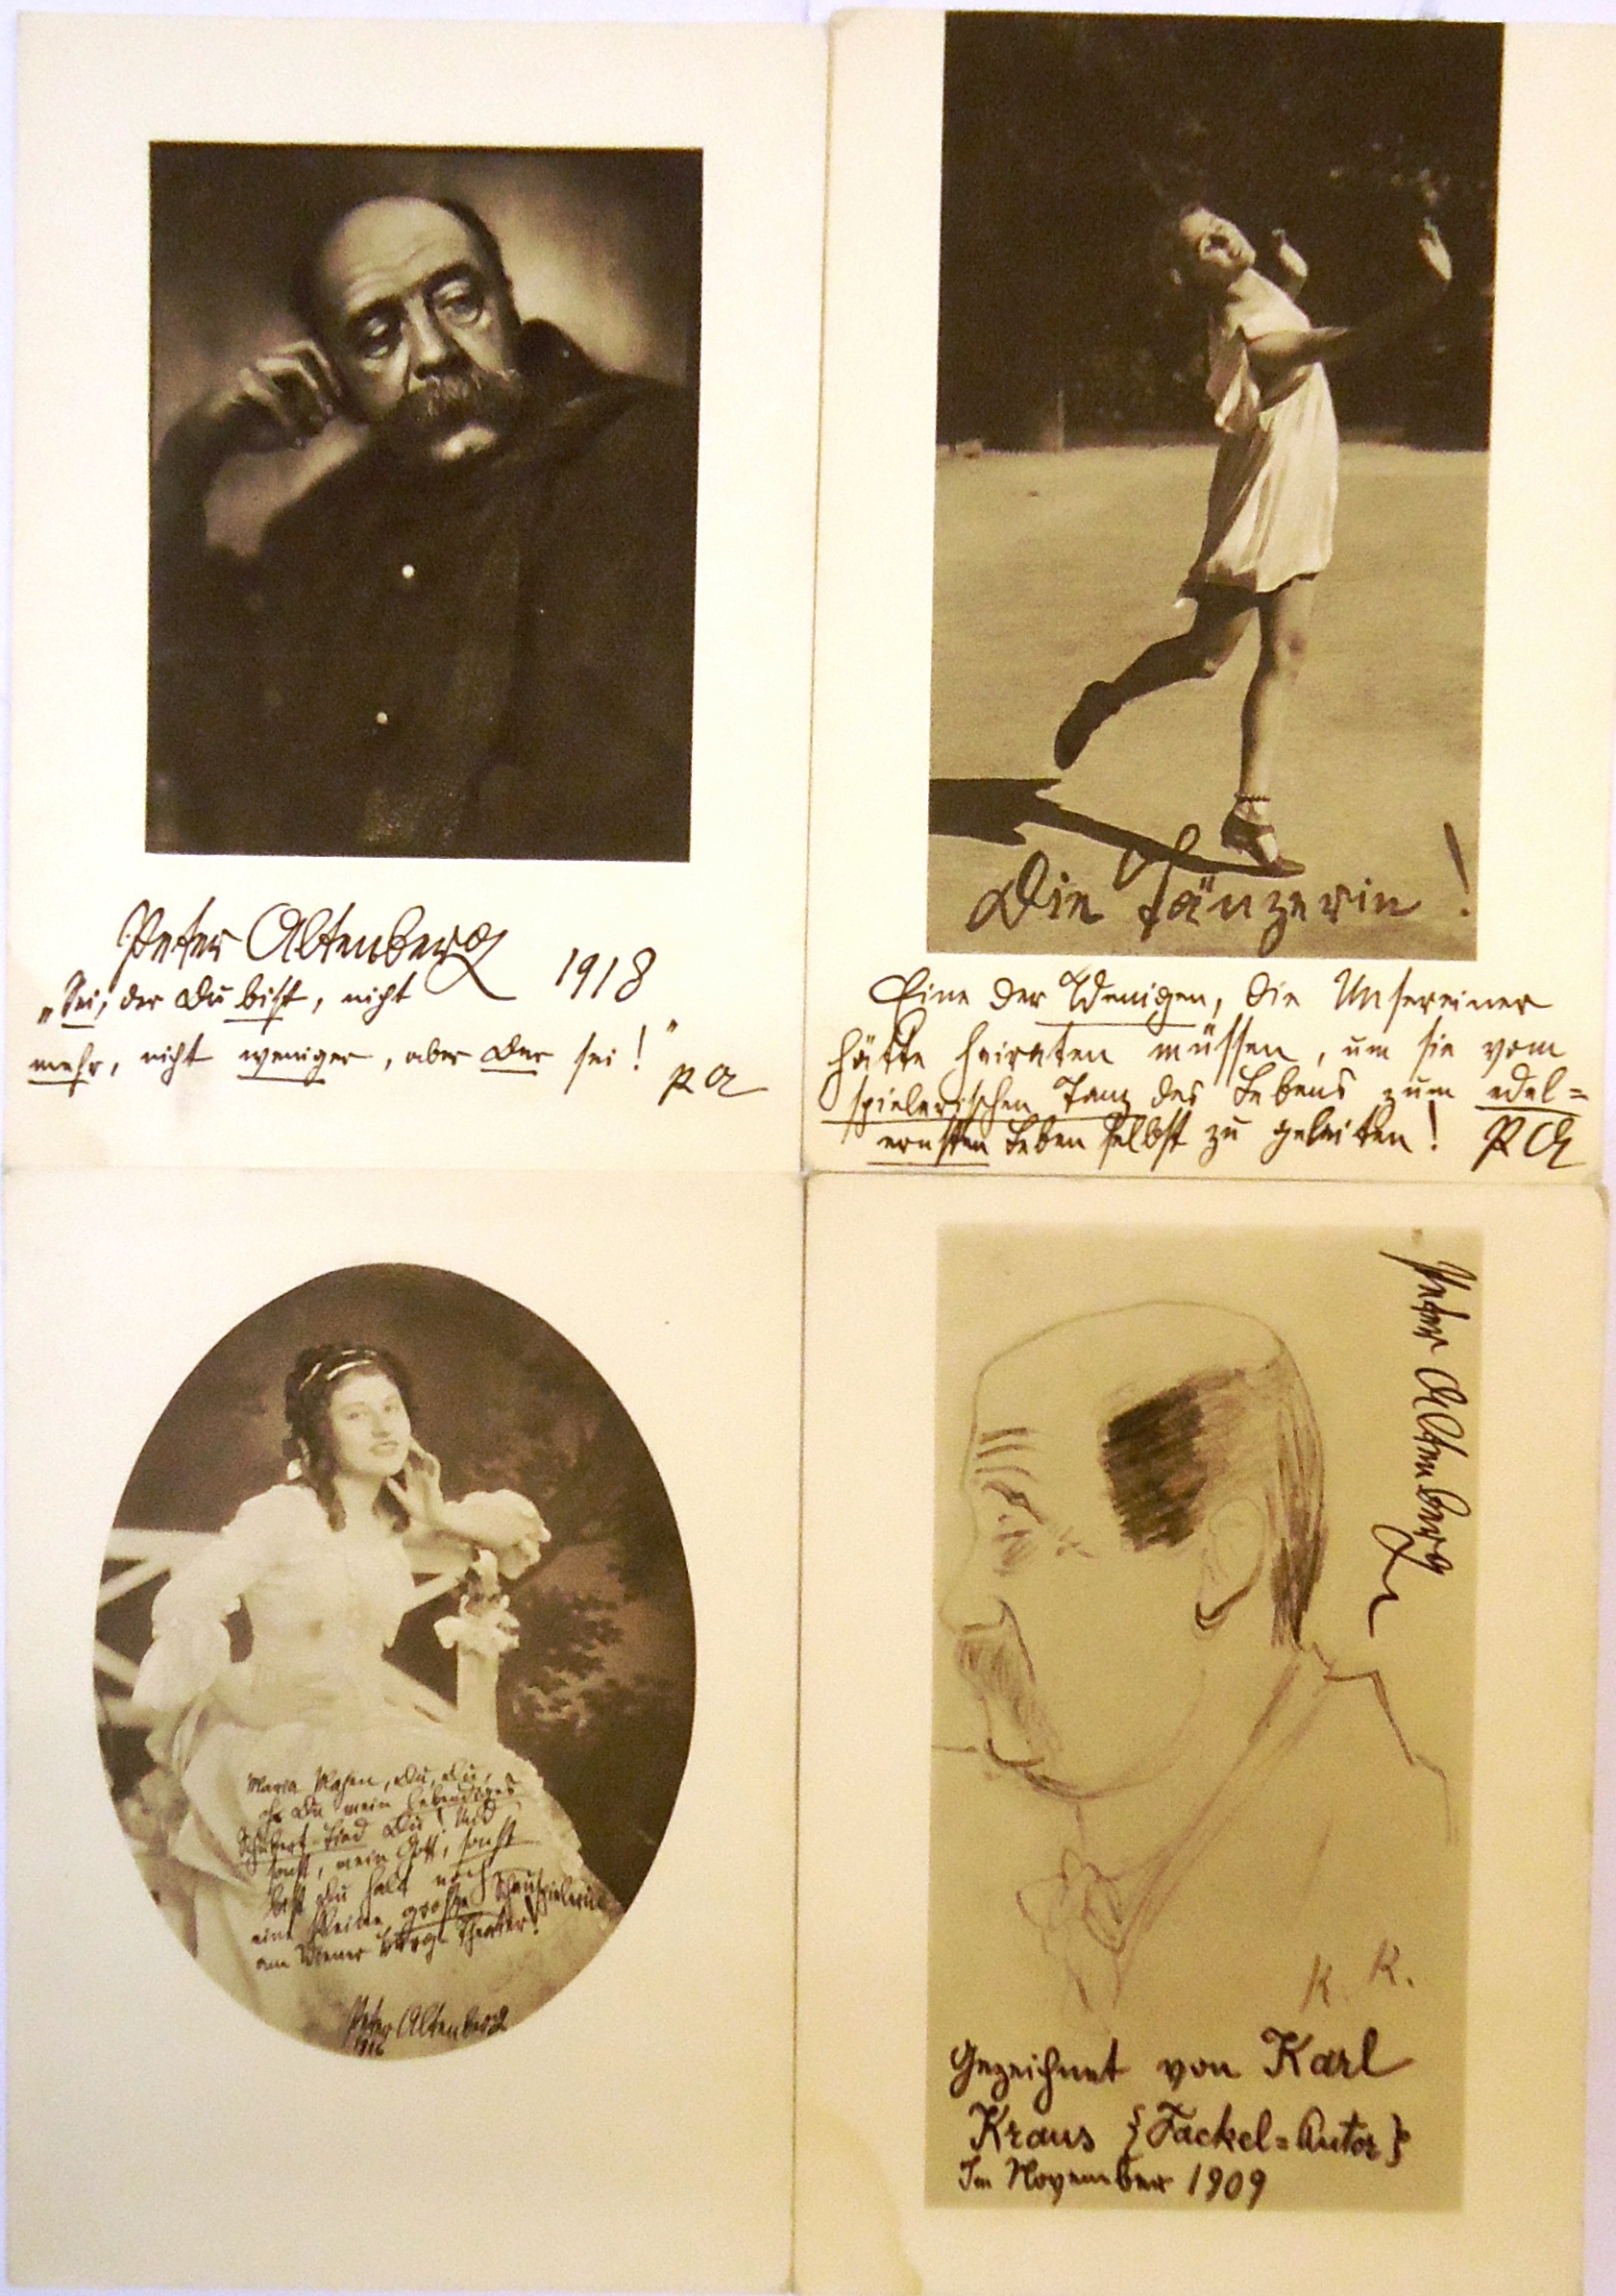 Peter Altenberg
1918
„Sei, der Du bist, nicht
mehr, nicht weniger, aber Der sei!"
PA
Die Tänzerin!
Eine der Wenigen, die Unsereiner
hätte heiraten müssen, um sie vom
spielerischen Tanz des Lebens zum edel=
ernsten Leben selbst zu geleiten! PA
Maria Mayen, Du, Du,
oh Du mein lebendiges
Schubert-Lied Du! Und
sonst, mein Gott, sonst
bist Du halt noch
eine kleine grosse Schauspielerin
am Wiener Burg-Theater!
Peter Altenberg
1916
Peter Altenberg
K. K.
Gezeichnet von Karl
Kraus {Fackel=Autor}
Im November 1909